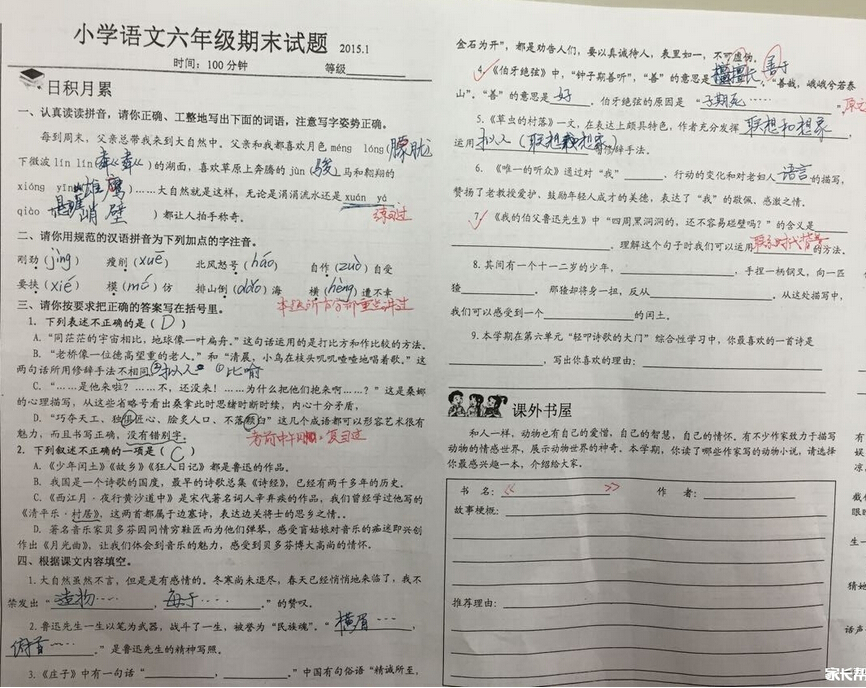 小学语文六年级期末试题 2015.1
时间：100分钟 等级
日积月累
一、认真读读拼音，请你正确、工整地写出下面的词语，注意写字姿势正确。
每到周末，父亲总带我来到大自然中。父亲和我都喜欢月色 méng lóng(朦胧
下微波 lín lín(粼粼)的湖面，喜欢草原上奔腾的 jùn(骏)马和翱翔的
xióng yīng(雄鹰)……大自然就是这样，无论是涓涓流水还是 xuán yá
qiào (悬崖峭壁)都让人拍手称奇。
练习过
二、请你用规范的汉语拼音为下列加点的字注音。
刚劲(jìng) 瘦削(xuē) 北风怒号(háo) 自作(zuò)自受
要挟(xié) 模(mó)仿 排山倒(dǎo)海 横(hèng)遭不幸
三、请你按要求把正确的答案写在括号里。
本题所有内容都重点讲过
1. 下列表述不正确的是(D)
A. “同茫茫的宇宙相比，地球像一叶扁舟。”这句话运用的是打比方和作比较的方法。
B. “老桥像一位德高望重的老人。”和“清晨，小鸟在枝头叽叽喳喳地唱着歌。”这
两句话所用修辞手法不相同。②拟人 ①比喻
C. “……是他来啦？……不，还没来！……为什么把他们抱来啊……？”这是桑娜
的心理描写，从这些省略号看出桑拿此时思绪时断时续，内心十分矛盾，
D. “巧夺天工、独俱匠心、脍炙人口、不落颗臼”这几个成语都可以形容艺术很有
魅力，而且书写正确，没有错别字。
考前中午 复习过
2. 下列叙述不正确的一项是(C)
A. 《少年闰土》《故乡》《狂人日记》都是鲁迅的作品。
B. 我国是一个诗歌的国度，最早的诗歌总集《诗经》，已经有两千多年的历史。
C. 《西江月·夜行黄沙道中》是宋代著名词人辛弃疾的作品，我们曾经学过他写的
《清平乐·村居》，这两首都属于边塞诗，表达边关将士的思乡之情。。
D. 著名音乐家贝多芬因同情穷鞋匠而为他们弹琴，感受盲姑娘对音乐的痴迷即兴创
作出《月光曲》，让我们体会到音乐的魅力，感受到贝多芬博大高尚的情怀。
四、根据课文内容填空。
1. 大自然虽然不言，但是是有感情的。冬寒尚未退尽，春天已经悄悄地来临了，我不
禁发出“造物……，每于……。”的赞叹。
2. 鲁迅先生一生以笔为武器，战斗了一生，被誉为“民族魂”。“横眉……，
俯首……。”是鲁迅先生的精神写照。
3. 《庄子》中有一句话“ ， 。”中国有句俗语“精诚所至，
金石为开”，都是劝告人们，要以真诚待人，表里如一，不可虚伪。
4. 《伯牙绝弦》中，“钟子期善听”，“善”的意思是擅长 善于，“善哉，峨峨兮若泰
山”。“善”的意思是好。伯牙绝弦的原因是“子期死……”
原文
5. 《草虫的村落》一文，在表达上颇具特色，作者充分发挥联想和想象，
运用拟人(联想和想象)修辞手法。
6. 《唯一的听众》通过对“我” 、行动的变化和对老妇人语言的描写，
赞扬了老教授爱护、鼓励年轻人成才的美德，表达了“我”的敬佩、感激之情。
7. 《我的伯父鲁迅先生》中“四周黑洞洞的，还不容易碰壁吗？”的含义是
，理解这个句子时我们可以运用联系时代背景的方法。
8. 其间有一个十一二岁的少年， ，手捏一柄钢叉，向一匹
猹 ，那猹却将身一扭，反从 。从这处描写中，
我们可以感受到一个 的闰土。
9. 本学期在第六单元“轻叩诗歌的大门”综合性学习中，你最喜欢的一首诗是
，写出你喜欢的理由：
课外书屋
和人一样，动物也有自己的爱憎，自己的智慧，自己的情怀。有不少作家致力于描写
动物的情感世界，展示动物世界的神奇。本学期，你读了哪些作家写的动物小说，请选择
你最感兴趣一本，介绍给大家。
书 名：《 》 作 者：
故事梗概：
推荐理由：
家长帮